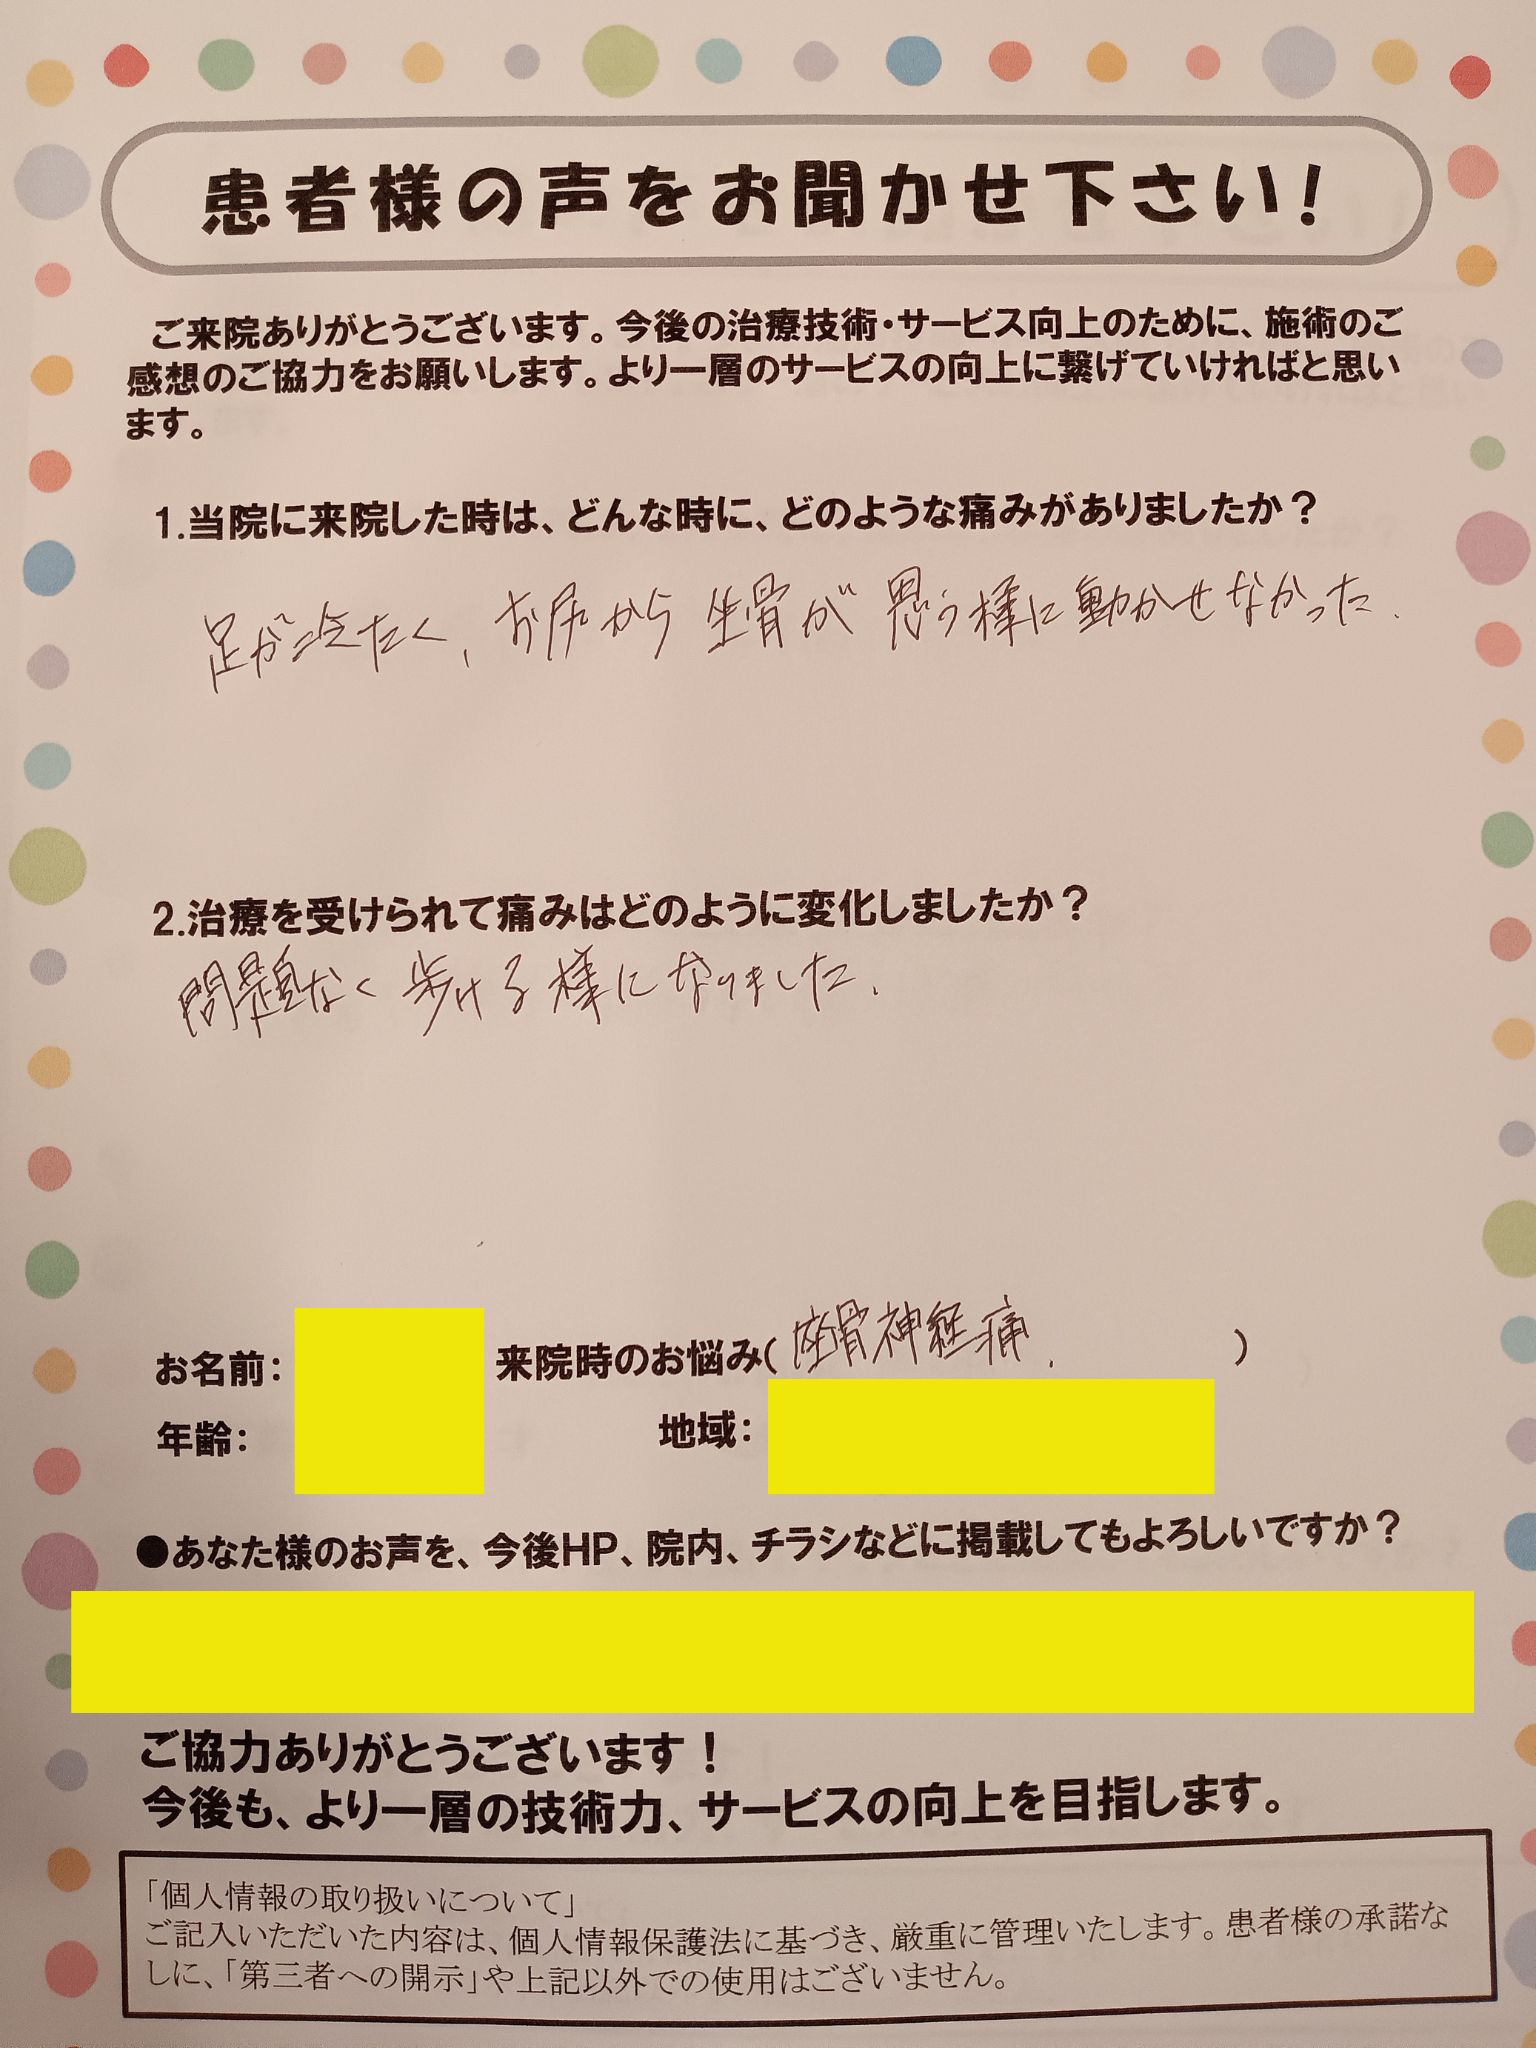 患者様の声をお聞かせ下さい!
ご来院ありがとうございます。今後の治療技術・サービス向上のために、施術のご
感想のご協力をお願いします。より一層のサービスの向上に繋げていければと思い
ます。
1.当院に来院した時は、どんな時に、どのような痛みがありましたか?
足が冷たく、お尻から坐骨が思う様に動かせなかった.
2.治療を受けられて痛みはどのように変化しましたか?
問題なく歩ける様になりました.
お名前: 来院時のお悩み(座骨神経痛. )
年齢: 地域:
●あなた様のお声を、今後HP、院内、チラシなどに掲載してもよろしいですか?
ご協力ありがとうございます!
今後も、より一層の技術力、サービスの向上を目指します。
「個人情報の取り扱いについて」
ご記入いただいた内容は、個人情報保護法に基づき、厳重に管理いたします。患者様の承諾な
しに、「第三者への開示」や上記以外での使用はございません。